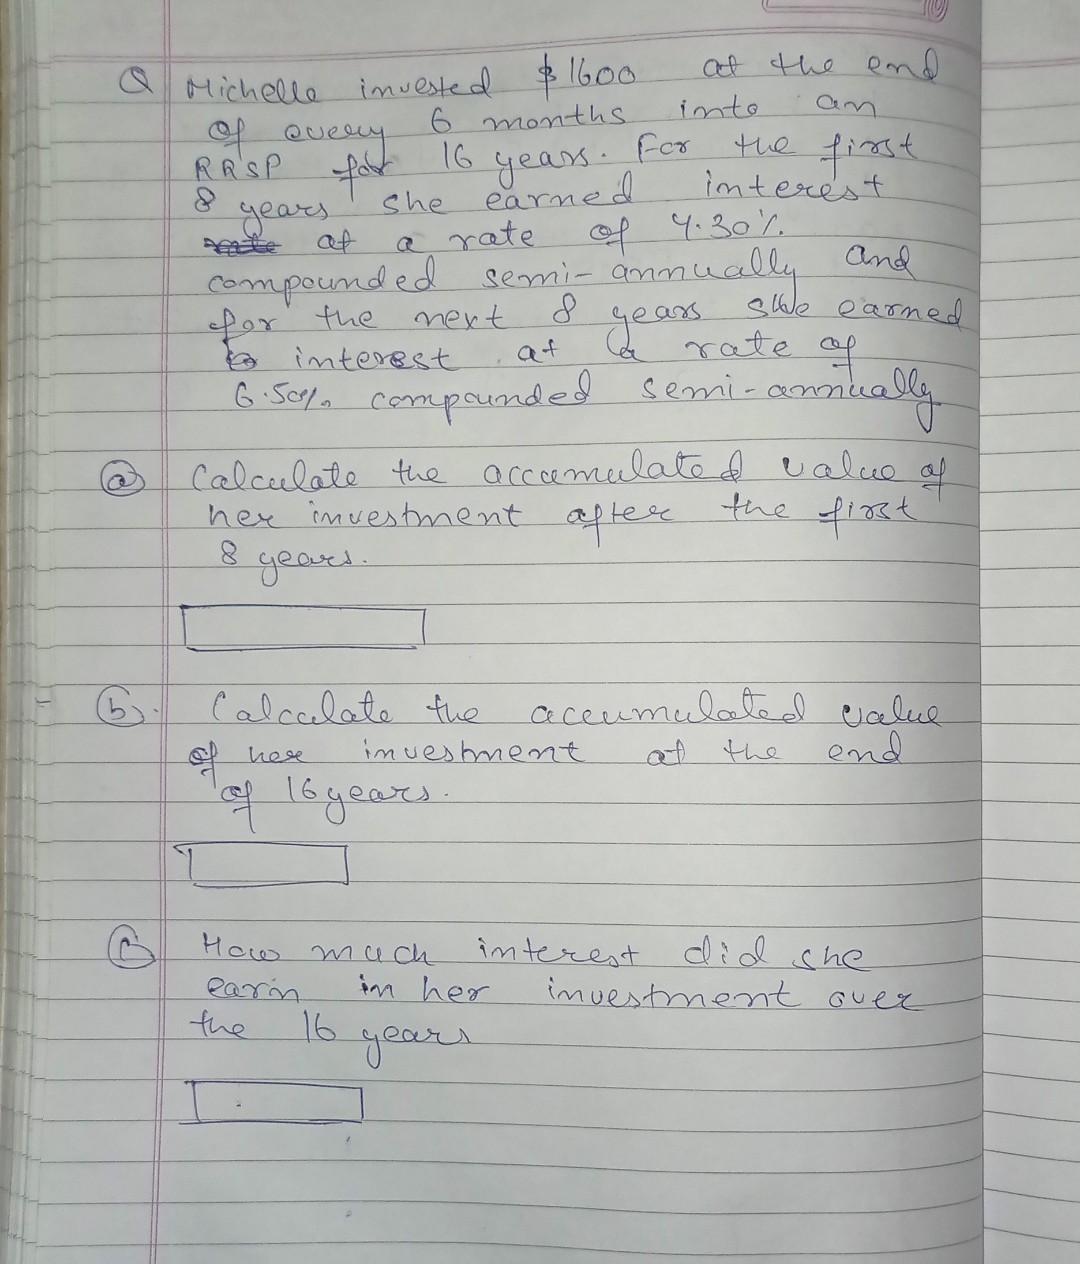 Q Michelle invested $1600 at the end
of every 6 months into an
RRSP for 16 years. For the first
8 years she earned interest
at a rate of 4.30%
compounded semi-annually and
for the next 8 years she earned
interest at a rate of
6.50% compounded semi-annually
(a) Calculate the accumulated value of
her investment after the first
8 years.
(b). Calculate the accumulated value
of her investment at the end
of 16 years.
(c) How much interest did she
earin in her investment over
the 16 years